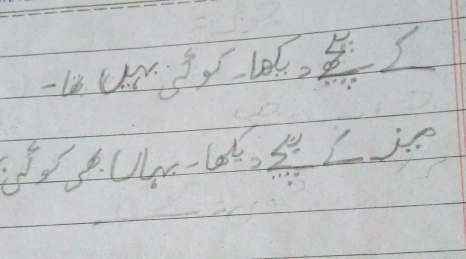 کے نیچے دیکھا۔ کوئی نہیں تھا۔
میز کے نیچے دیکھا۔ یہاں بھی کوئی